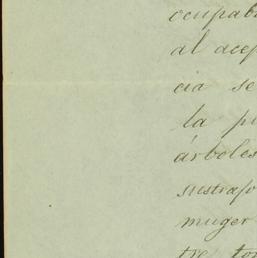 ocupab
al acep
cia se
la pi
árboles
sustrajo
muger
tre tor